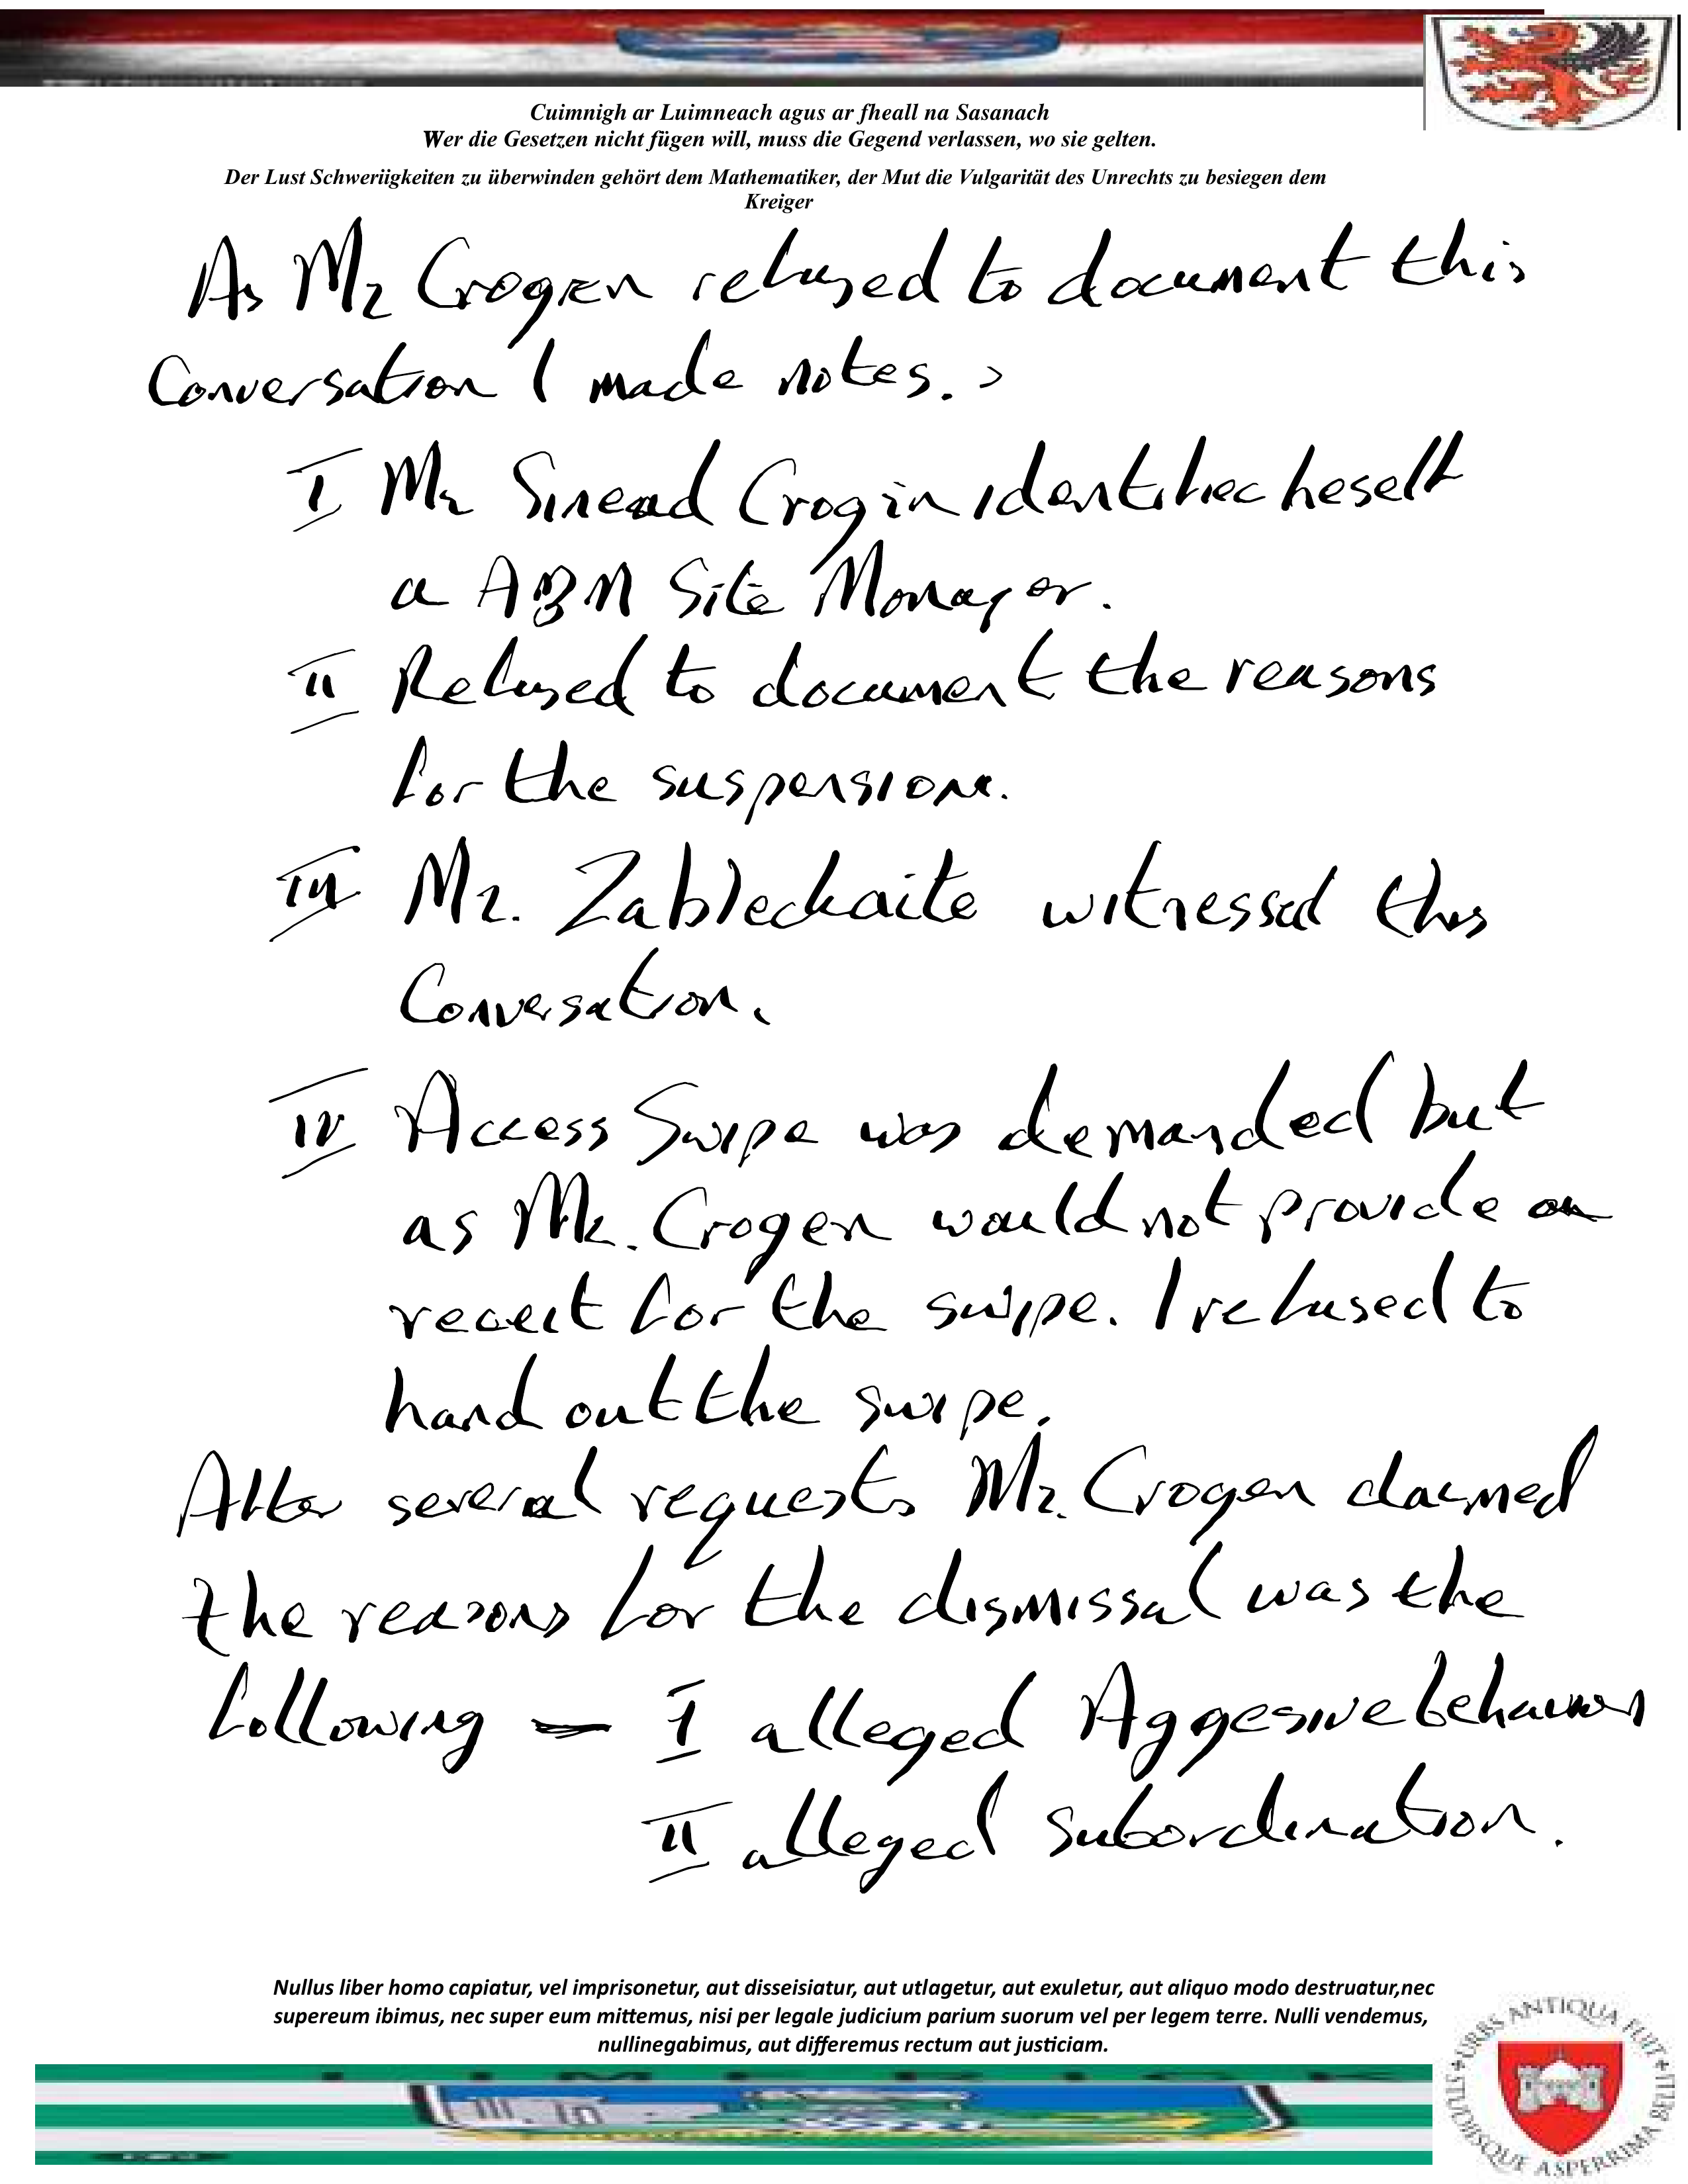 Cuimnigh ar Luimneach agus ar fheall na Sasanach
Wer die Gesetzen nicht fügen will, muss die Gegend verlassen, wo sie gelten.
Der Lust Schweriigkeiten zu überwinden gehört dem Mathematiker, der Mut die Vulgarität des Unrechts zu besiegen dem
Kreiger
As Mr Crogen refused to document this
Conversation I made notes. >
I Mr Sinead Crogin identified heself
a ABM Site Manager.
II Refused to document the reasons
for the suspension.
III Mr. Zableckaite witnessed this
Conversation.
IV Access Swipe was demanded but
as Mr. Crogen would not provide
receit for the swipe. I refused to
hand out the swipe.
After several requests Mr. Crogen claimed
the reasons for the dismissal was the
following — I alleged Aggesive behaviour
II alleged subordination.
Nullus liber homo capiatur, vel imprisonetur, aut disseisiatur, aut utlagetur, aut exuletur, aut aliquo modo destruatur,nec
supereum ibimus, nec super eum mittemus, nisi per legale judicium parium suorum vel per legem terre. Nulli vendemus,
nullinegabimus, aut differemus rectum aut justiciam.
URBS ANTIQUA FUIT STUDIISQUE ASPERRIMA BELLI